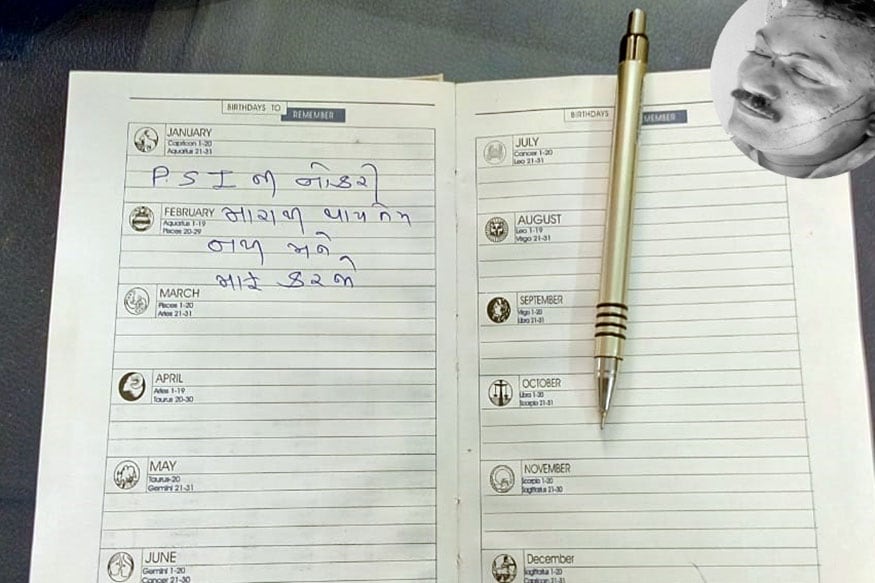 BIRTHDAYS TO REMEMBER
JANUARY
Capricorn 1-20
Aquatius 21-31
P.S I ની નોકરી
FEBRUARY
Aquatius 1-19
Pisces 20-29
મારાથી થાય તેમ
નથી મને
માફ કરજો
MARCH
Pisces 1-20
Aries 21-31
APRIL
Aries 1-19
Taurus 20-30
MAY
Taurus-20
Gemini 21-31
JUNE
Gemini 1-20
Cancer 21-30
BIRTHDAYS
JULY
Cancer 1-20
Leo 21-31
AUGUST
Leo 1-19
Virgo 21-31
SEPTEMBER
Virgo 1-20
Libra 21-31
OCTOBER
Libra 1-20
Scorpio 21-31
NOVEMBER
Scorpio 1-20
Sagittatius 21-30
December
Sagittatius 1-20
Capricorn 21-31